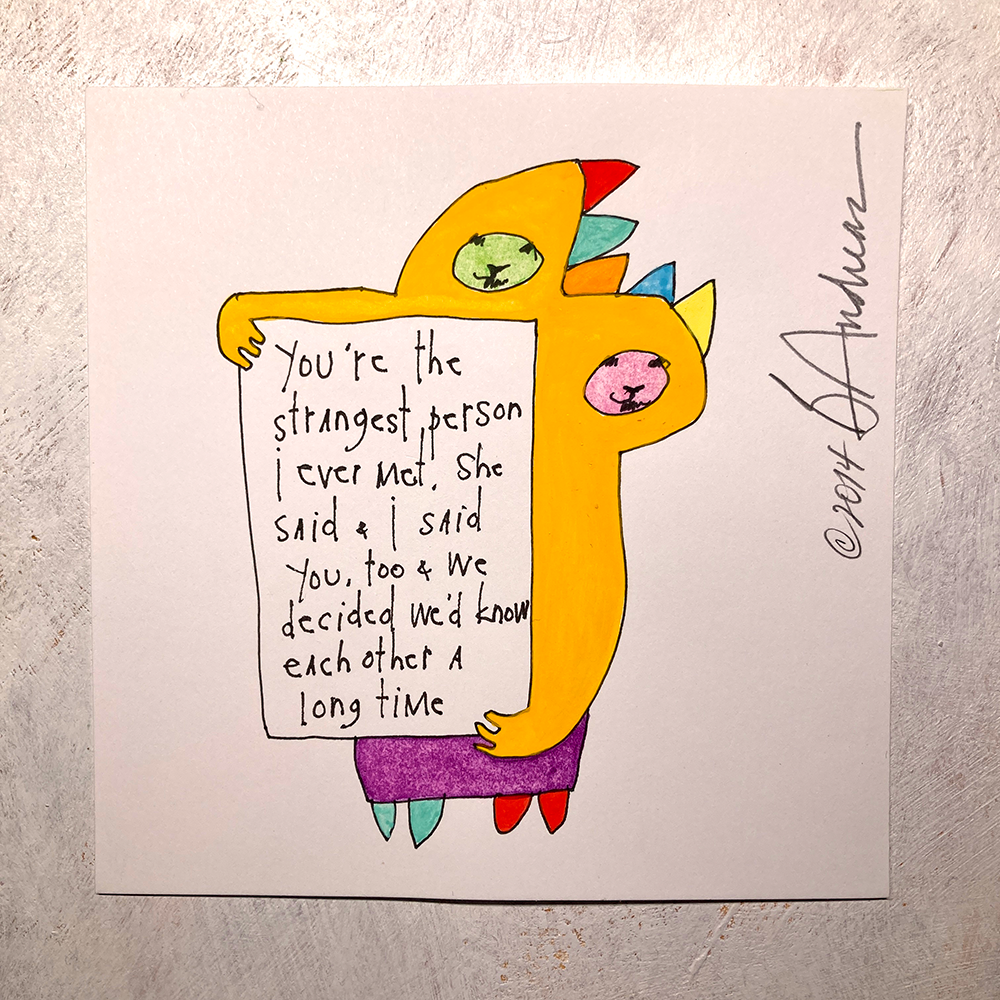 You're the
strangest person
i ever met, she
said & i said
you, too & we
decided we'd know
each other a
long time
©2014 BAndreas